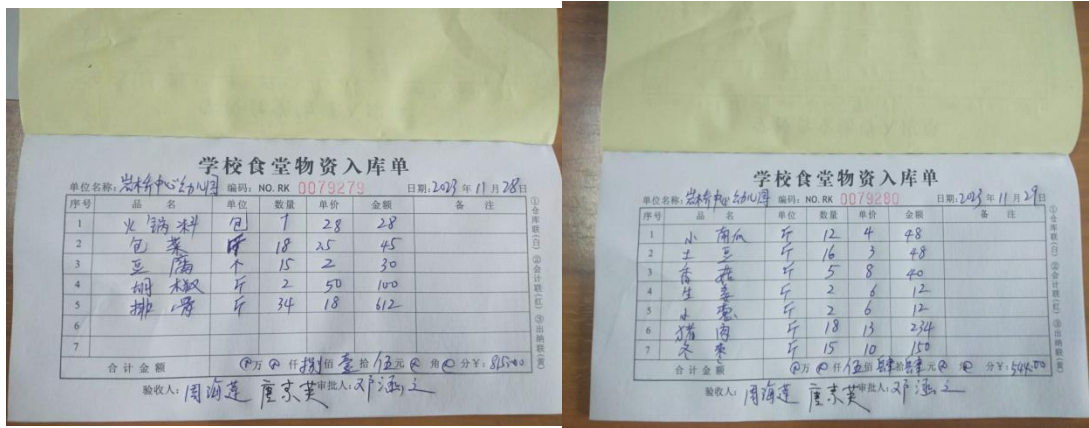 学校食堂物资入库单
单位名称：岩桥中心幼儿园 编码：NO. RK 0079279 日期：2023 年 11 月 28 日
序号 品名 单位 数量 单价 金额 备注
1 火锅料 包 1 28 28
2 包菜 斤 18 25 45
3 豆腐 个 15 2 30
4 胡椒 斤 2 50 100
5 排骨 斤 34 18 612
6
7
合计金额 万 仟 捌佰 壹拾 伍元 角 分 ¥：815.00
验收人：周海莲 唐京英 审批人：邓
①仓库联（白） ②会计联（红） ③出纳联（黄）
学校食堂物资入库单
单位名称：岩桥中心幼儿园 编码：NO. RK 0079280 日期：2023 年 11 月 29 日
序号 品名 单位 数量 单价 金额 备注
1 小南瓜 斤 12 4 48
2 土豆 斤 16 3 48
3 香菇 斤 5 8 40
4 生姜 斤 2 6 12
5 小葱 斤 2 6 12
6 猪肉 斤 18 13 234
7 冬枣 斤 15 10 150
合计金额 万 仟 伍佰 肆拾 肆元 角 分 ¥：544.00
验收人：周海莲 唐京英 审批人：邓
①仓库联（白） ②会计联（红） ③出纳联（黄）